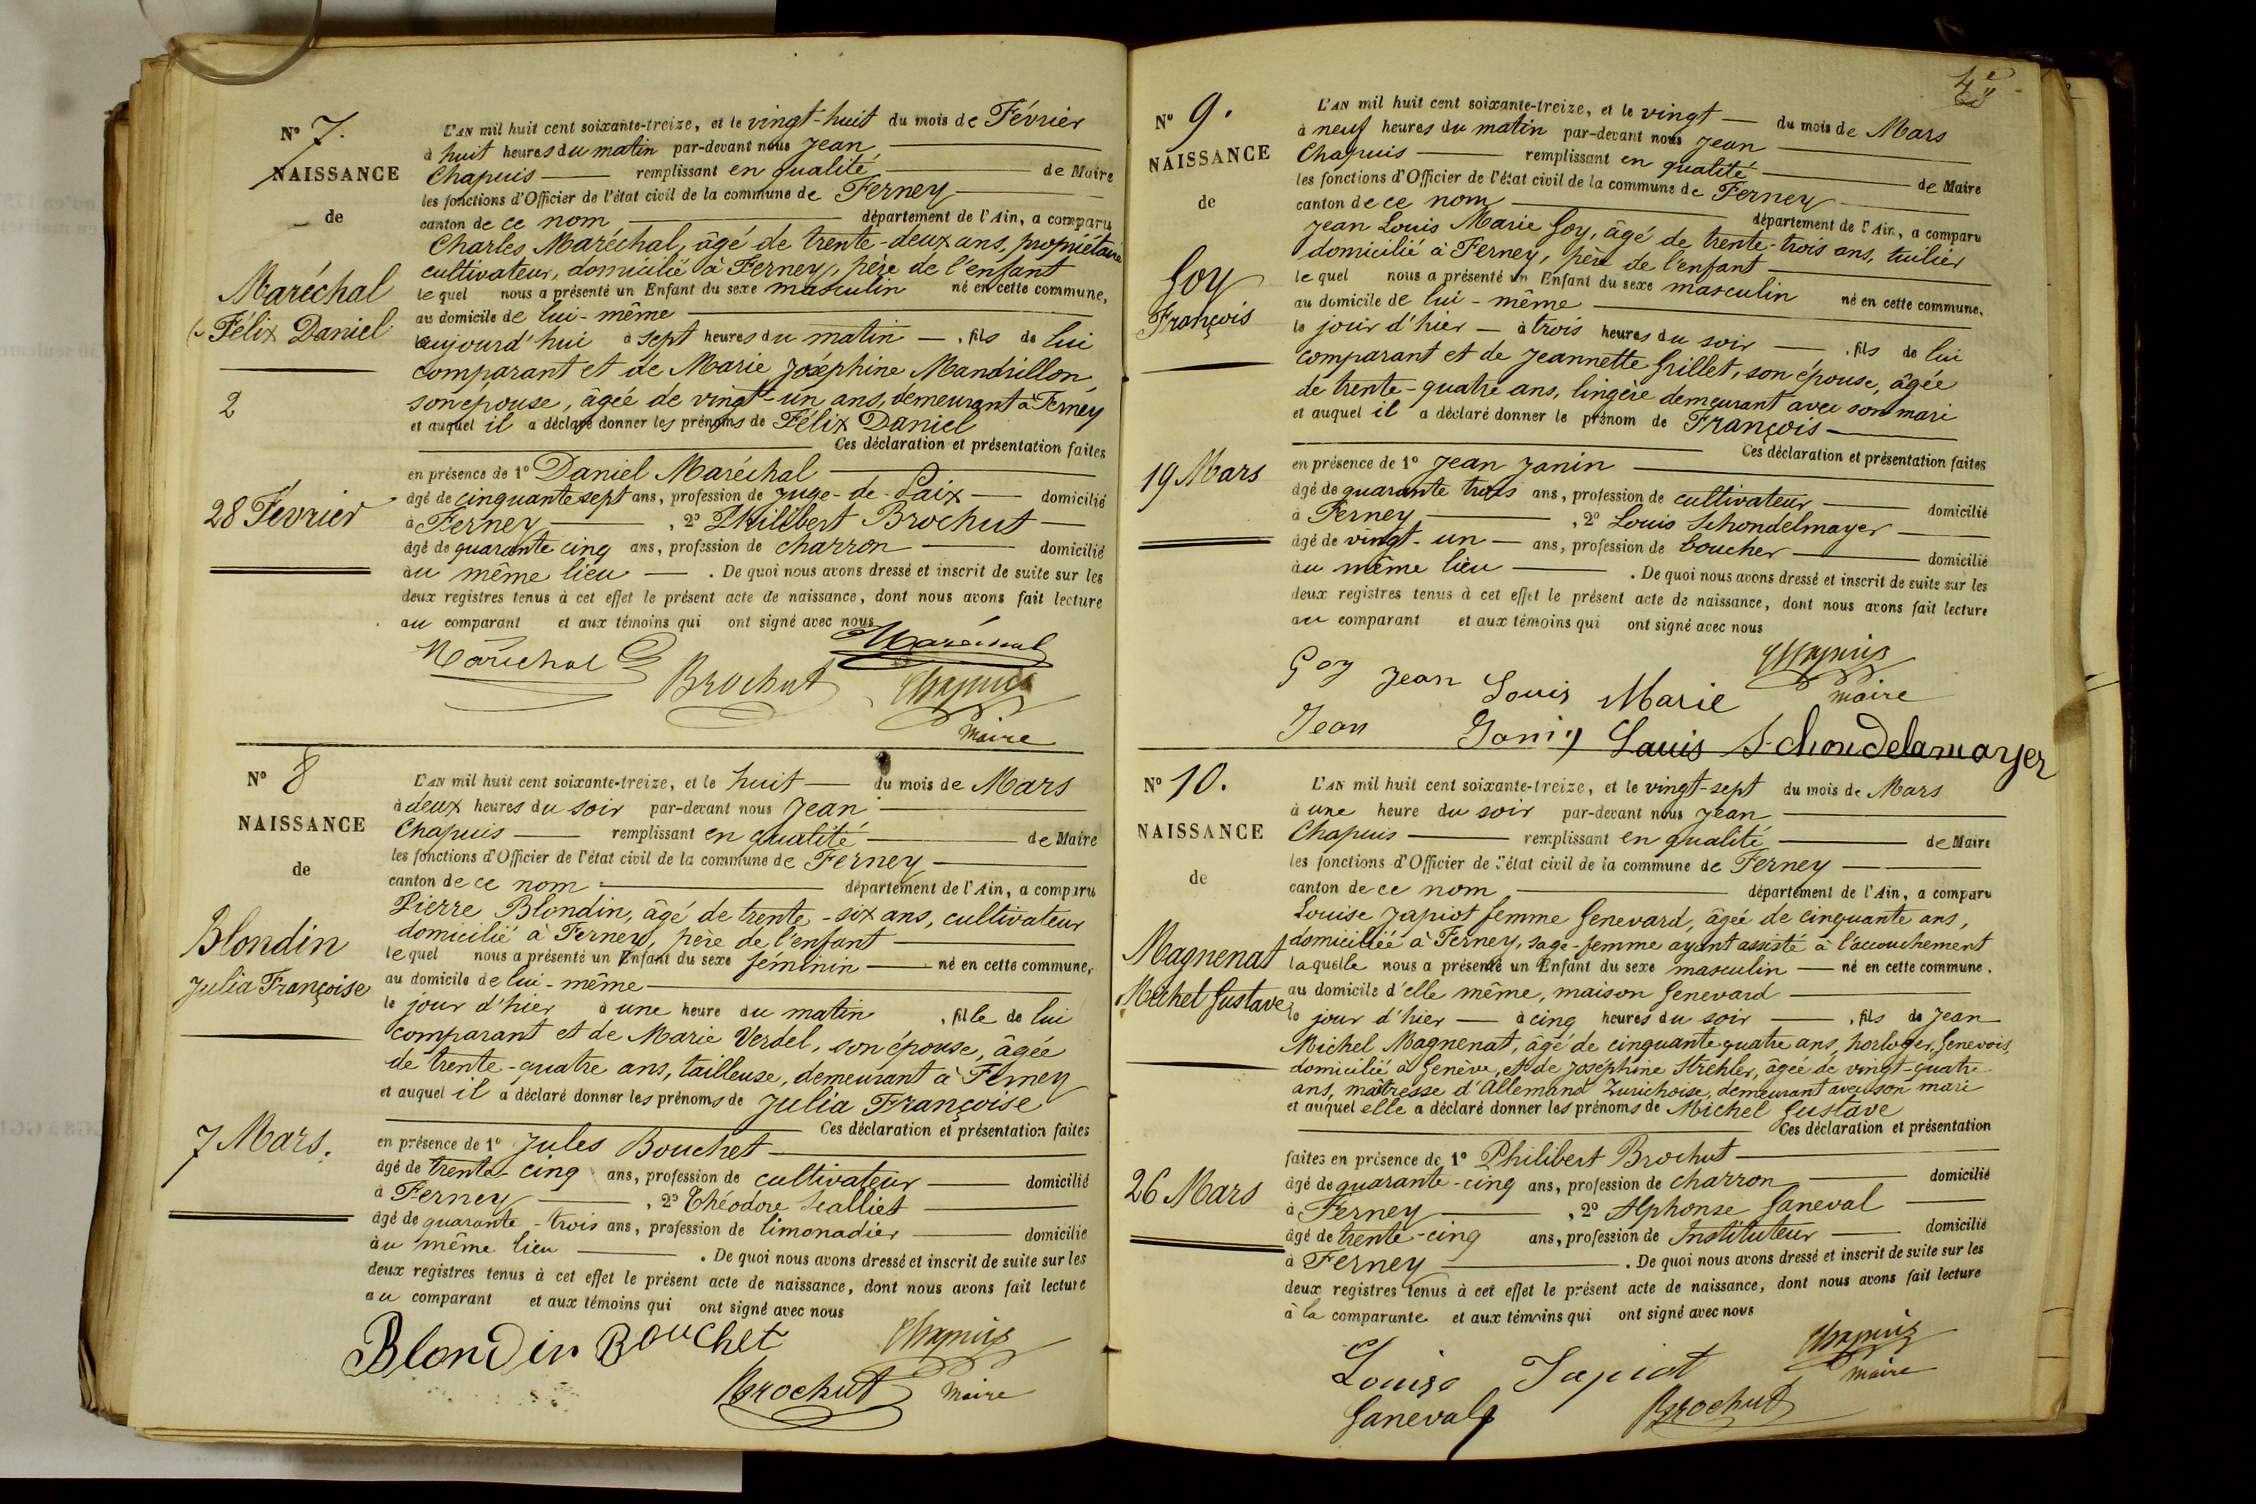 N° 7.
NAISSANCE
de
Maréchal
Félix Daniel
2
28 Février
L'AN mil huit cent soixante-treize, et le vingt-huit du mois de Février
à huit heures du matin par-devant nous Jean
Chapuis remplissant en qualité de Maire
les fonctions d'Officier de l'état civil de la commune de Ferney
canton de ce nom département de l'Ain, a comparu
Charles Maréchal, âgé de trente-deux ans, propriétaire
cultivateur, domicilié à Ferney, père de l'enfant
lequel nous a présenté un Enfant du sexe masculin né en cette commune,
au domicile de lui-même
aujourd'hui à sept heures du matin, fils de lui
comparant et de Marie Joséphine Mandrillon,
son épouse, âgée de vingt-un ans, demeurant à Ferney
et auquel il a déclaré donner les prénoms de Félix Daniel
Ces déclaration et présentation faites
en présence de 1° Daniel Maréchal
âgé de cinquante sept ans, profession de Juge-de-Paix domicilié
à Ferney, 2° Philibert Brochut
âgé de quarante cinq ans, profession de charron domicilié
au même lieu. De quoi nous avons dressé et inscrit de suite sur les
deux registres tenus à cet effet le présent acte de naissance, dont nous avons fait lecture
au comparant et aux témoins qui ont signé avec nous
Maréchal D Maréchal
Brochut Chapuis
Maire
N° 8
NAISSANCE
de
Blondin
Julia Françoise
7 Mars.
L'AN mil huit cent soixante-treize, et le huit du mois de Mars
à deux heures du soir par-devant nous Jean
Chapuis remplissant en qualité de Maire
les fonctions d'Officier de l'état civil de la commune de Ferney
canton de ce nom département de l'Ain, a comparu
Pierre Blondin, âgé de trente-six ans, cultivateur
domicilié à Ferney, père de l'enfant
lequel nous a présenté un Enfant du sexe féminin né en cette commune,
au domicile de lui-même
le jour d'hier à une heure du matin, fille de lui
comparant et de Marie Verdel, son épouse, âgée
de trente-quatre ans, tailleuse, demeurant à Ferney
et auquel il a déclaré donner les prénoms de Julia Françoise
Ces déclaration et présentation faites
en présence de 1° Jules Bouchet
âgé de trente-cinq ans, profession de cultivateur domicilié
à Ferney, 2° Théodore
âgé de quarante-trois ans, profession de limonadier domicilié
au même lieu. De quoi nous avons dressé et inscrit de suite sur les
deux registres tenus à cet effet le présent acte de naissance, dont nous avons fait lecture
au comparant et aux témoins qui ont signé avec nous
Blondin Bouchet Chapuis
Brochut Maire
N° 9.
NAISSANCE
de
Goy
François
19 Mars
L'AN mil huit cent soixante-treize, et le vingt du mois de Mars
à neuf heures du matin par-devant nous Jean
Chapuis remplissant en qualité de Maire
les fonctions d'Officier de l'état civil de la commune de Ferney
canton de ce nom département de l'Ain, a comparu
Jean Louis Marie Goy, âgé de trente-trois ans, tuilier
domicilié à Ferney, père de l'enfant
lequel nous a présenté un Enfant du sexe masculin né en cette commune,
au domicile de lui-même
le jour d'hier à trois heures du soir, fils de lui
comparant et de Jeannette Grillet, son épouse, âgée
de trente-quatre ans, lingère demeurant avec son mari
et auquel il a déclaré donner le prénom de François
Ces déclaration et présentation faites
en présence de 1° Jean Janin
âgé de quarante trois ans, profession de cultivateur domicilié
à Ferney, 2° Louis Schondelmayer
âgé de vingt-un ans, profession de boucher domicilié
au même lieu. De quoi nous avons dressé et inscrit de suite sur les
deux registres tenus à cet effet le présent acte de naissance, dont nous avons fait lecture
au comparant et aux témoins qui ont signé avec nous
Goy Jean Louis Marie Chapuis
Maire
Jean Janin Louis Schondelamayer
N° 10.
NAISSANCE
de
Magnenat
Michel Gustave
26 Mars
L'AN mil huit cent soixante-treize, et le vingt-sept du mois de Mars
à une heure du soir par-devant nous Jean
Chapuis remplissant en qualité de Maire
les fonctions d'Officier de l'état civil de la commune de Ferney
canton de ce nom département de l'Ain, a comparu
Louise Japiot femme Genevard, âgée de cinquante ans,
domiciliée à Ferney, sage-femme ayant assisté à l'accouchement
laquelle nous a présenté un Enfant du sexe masculin né en cette commune.
au domicile d'elle même, maison Genevard
le jour d'hier à cinq heures du soir, fils de Jean
Michel Magnenat, âgé de cinquante quatre ans, horloger, Genevois,
domicilié à Genève, et de Joséphine Strehler, âgée de vingt-quatre
ans, maîtresse d'Allemand Zurichoise, demeurant avec son mari
et auquel elle a déclaré donner les prénoms de Michel Gustave
Ces déclaration et présentation
faites en présence de 1° Philibert Brochut
âgé de quarante-cinq ans, profession de charron domicilié
à Ferney, 2° Alphonse Ganeval
âgé de trente-cinq ans, profession de Instituteur domicilié
à Ferney. De quoi nous avons dressé et inscrit de suite sur les
deux registres tenus à cet effet le présent acte de naissance, dont nous avons fait lecture
à la comparante et aux témoins qui ont signé avec nous
Louise Japiot Chapuis
Maire
Ganeval Brochut